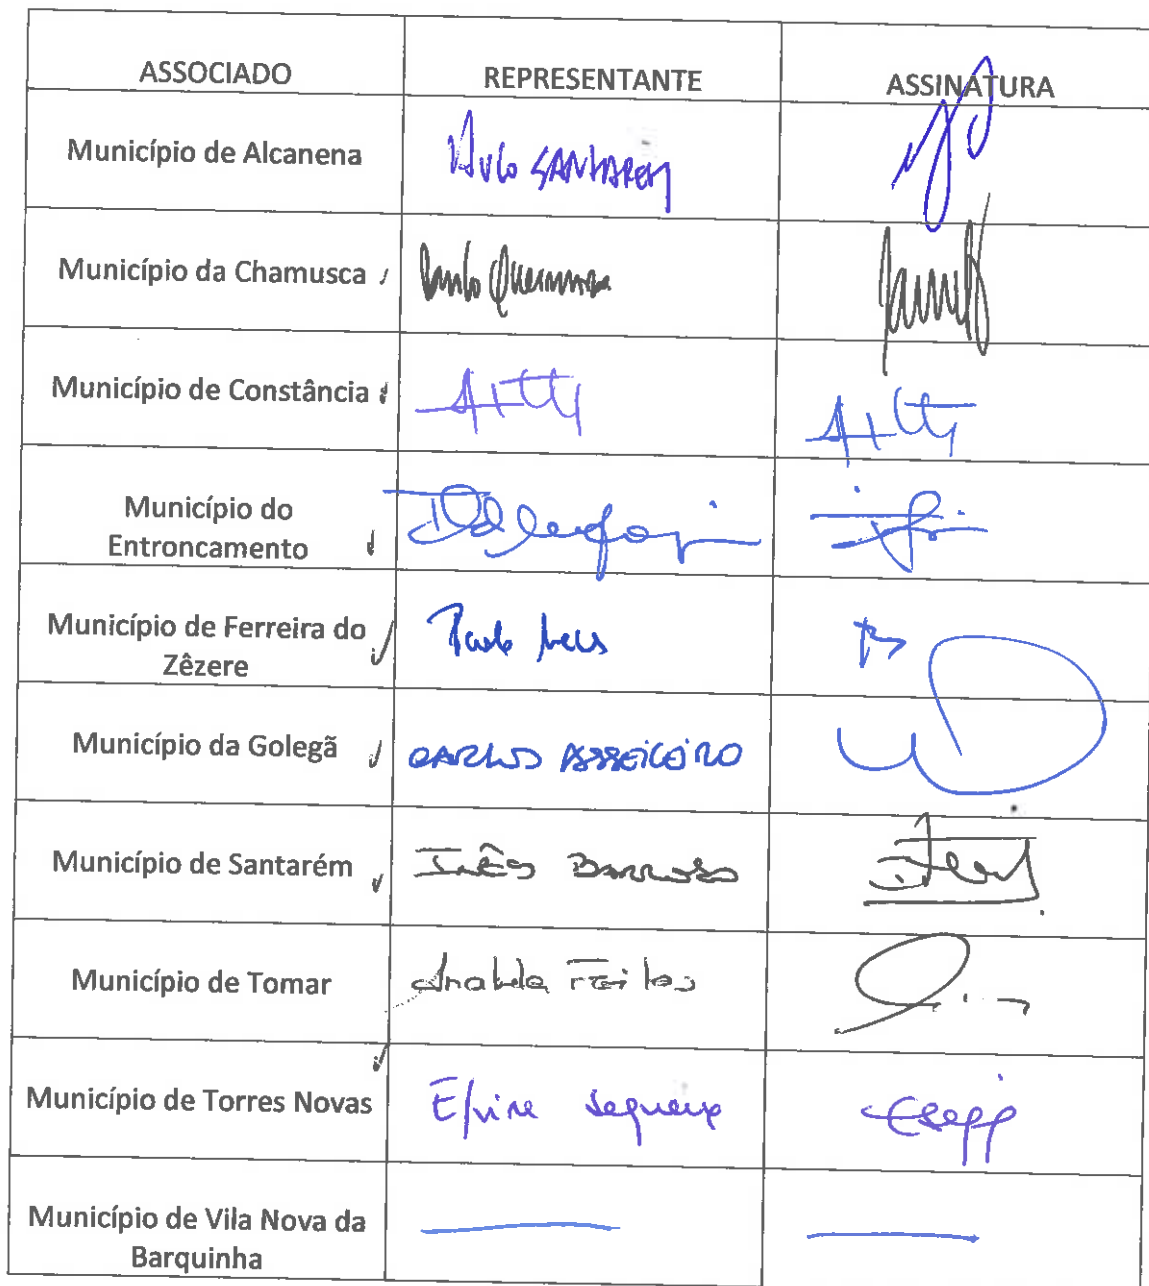 ASSOCIADO REPRESENTANTE ASSINATURA
Município de Alcanena Hugo SANTAREM
Município da Chamusca Paulo Queimado
Município de Constância
Município do
Entroncamento
Município de Ferreira do
Zêzere Paulo Neves
Município da Golegã CARLOS ASSEICEIRO
Município de Santarém INÊS BARROSO
Município de Tomar Anabela Freitas
Município de Torres Novas Elvira Sequeira
Município de Vila Nova da
Barquinha